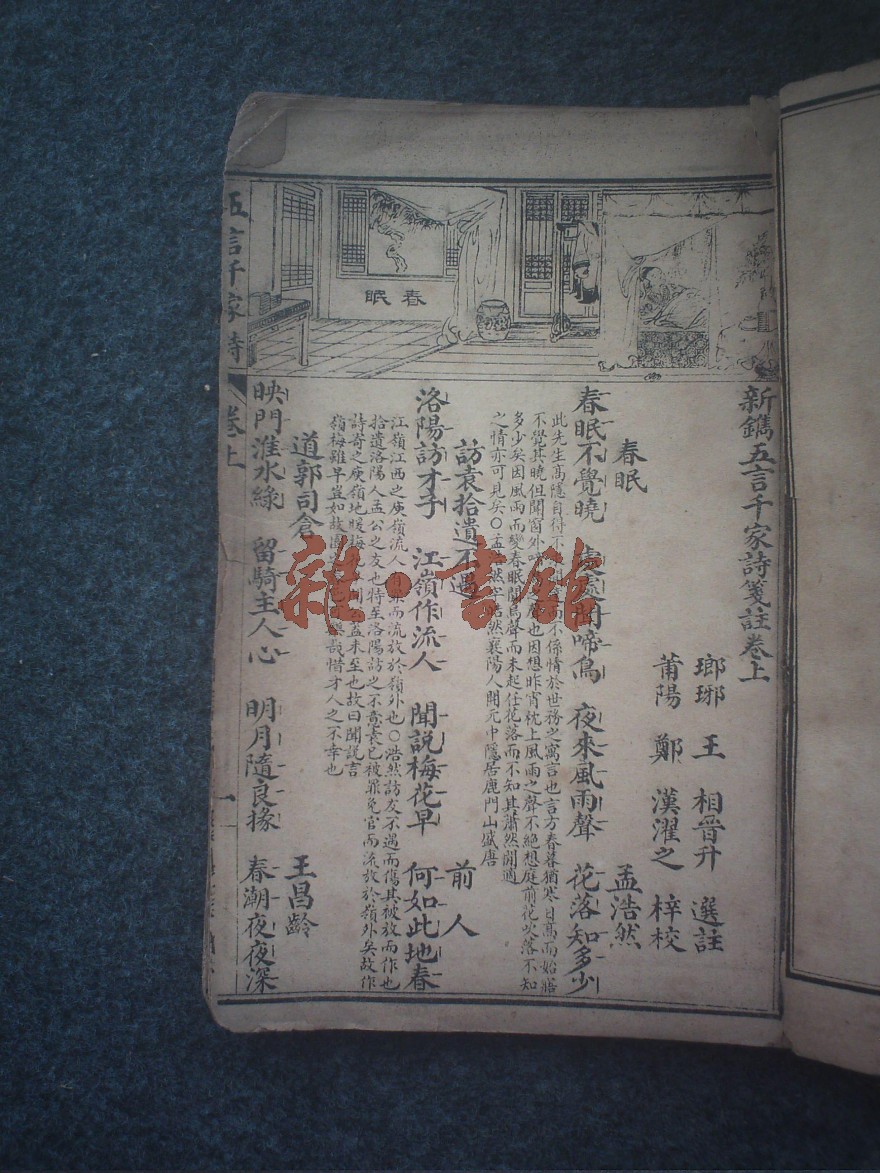 新鐫五言千家詩箋註卷上
瑯琊 王 相晉升 選註
莆陽 鄭 漢濯之 梓校
春眠
春眠 孟浩然
春眠不覺曉 處處聞啼鳥 夜來風雨聲 花落知多少
此先生高隱自得不係情於世務之寓言也言方春暮猶寒日高而始寤
不覺其曉但聞窗外也因想昨宵枕上風雨之聲不絕想庭前花吹落不知
多少矣因風雨而變春眠聞鳥聲而未起任花落而不知其蕭然閒適
之情亦可見矣〇孟浩然字浩然襄陽人開元中隱居鹿門山盛唐
訪袁拾遺不遇 前人
洛陽訪才子 江嶺作流人 聞說梅花早 何如此地春
江嶺江西之庾嶺流人有罪而流放於嶺外也〇浩然訪友不遇而傷其被放而作也
拾遺洛陽人孟公之友也特至洛陽訪之不意袁已被罪免官而流放於嶺外矣故作
詩寄之庾嶺地暖梅蓋未至也故曰聞說言
嶺梅雖早豈如故園哉惜才人之不幸也
道郭司倉 王昌齡
映門淮水綠 留騎主人心 明月隨良掾 春潮夜夜深
五言千家詩
卷上
一
雜·書館